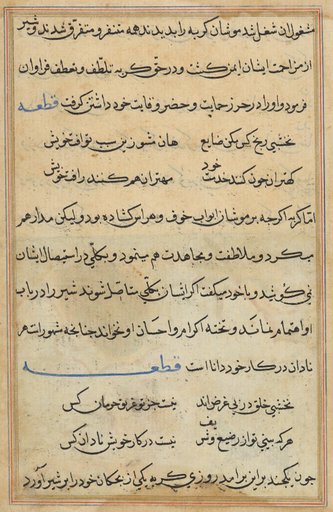 مشغول آن شغل شدند موشان گربه را بدیدند همه متنفر و متفرق شدند و شیر
از مزاحمت ایشان ایمن گشت و در حق گربه تلطف و تعطف فراوان
فرمود و او را در حرز حمایت و حضر وقایت خود داشتن گرفت قطعه
نخشبی رنج کس مکن ضایع هان شو زین سبب تو آفت خویش
کهتران چون کنند خدمت خود مهتران هم کنند رأفت خویش
اما گربه اگرچه بر موشان ابواب خوف و هراس گشاده بود ولیکن مدارا هم
میکرد و ملاطفت و مجاهدت هم مینمود و بکلی در استیصال ایشان
نمی کوشید و با خود میگفت اگر ایشان بکلی مستأصل شوند شیر را در باب
او اهتمام نماند و تخته اکرام و احسان او نخواند چنانچه مشهور است هر
نادان در کار خود دانا است قطعه
نخشبی خلق در پی غرض اند نیست جز تو غریق حرمان کس
هر که بینی تو از رضیع و شریف نیست در کار خویش نادان کس
چون یکچند بر این برآمد روزی گربه یکی از بچگان خود را بر شیر آورد